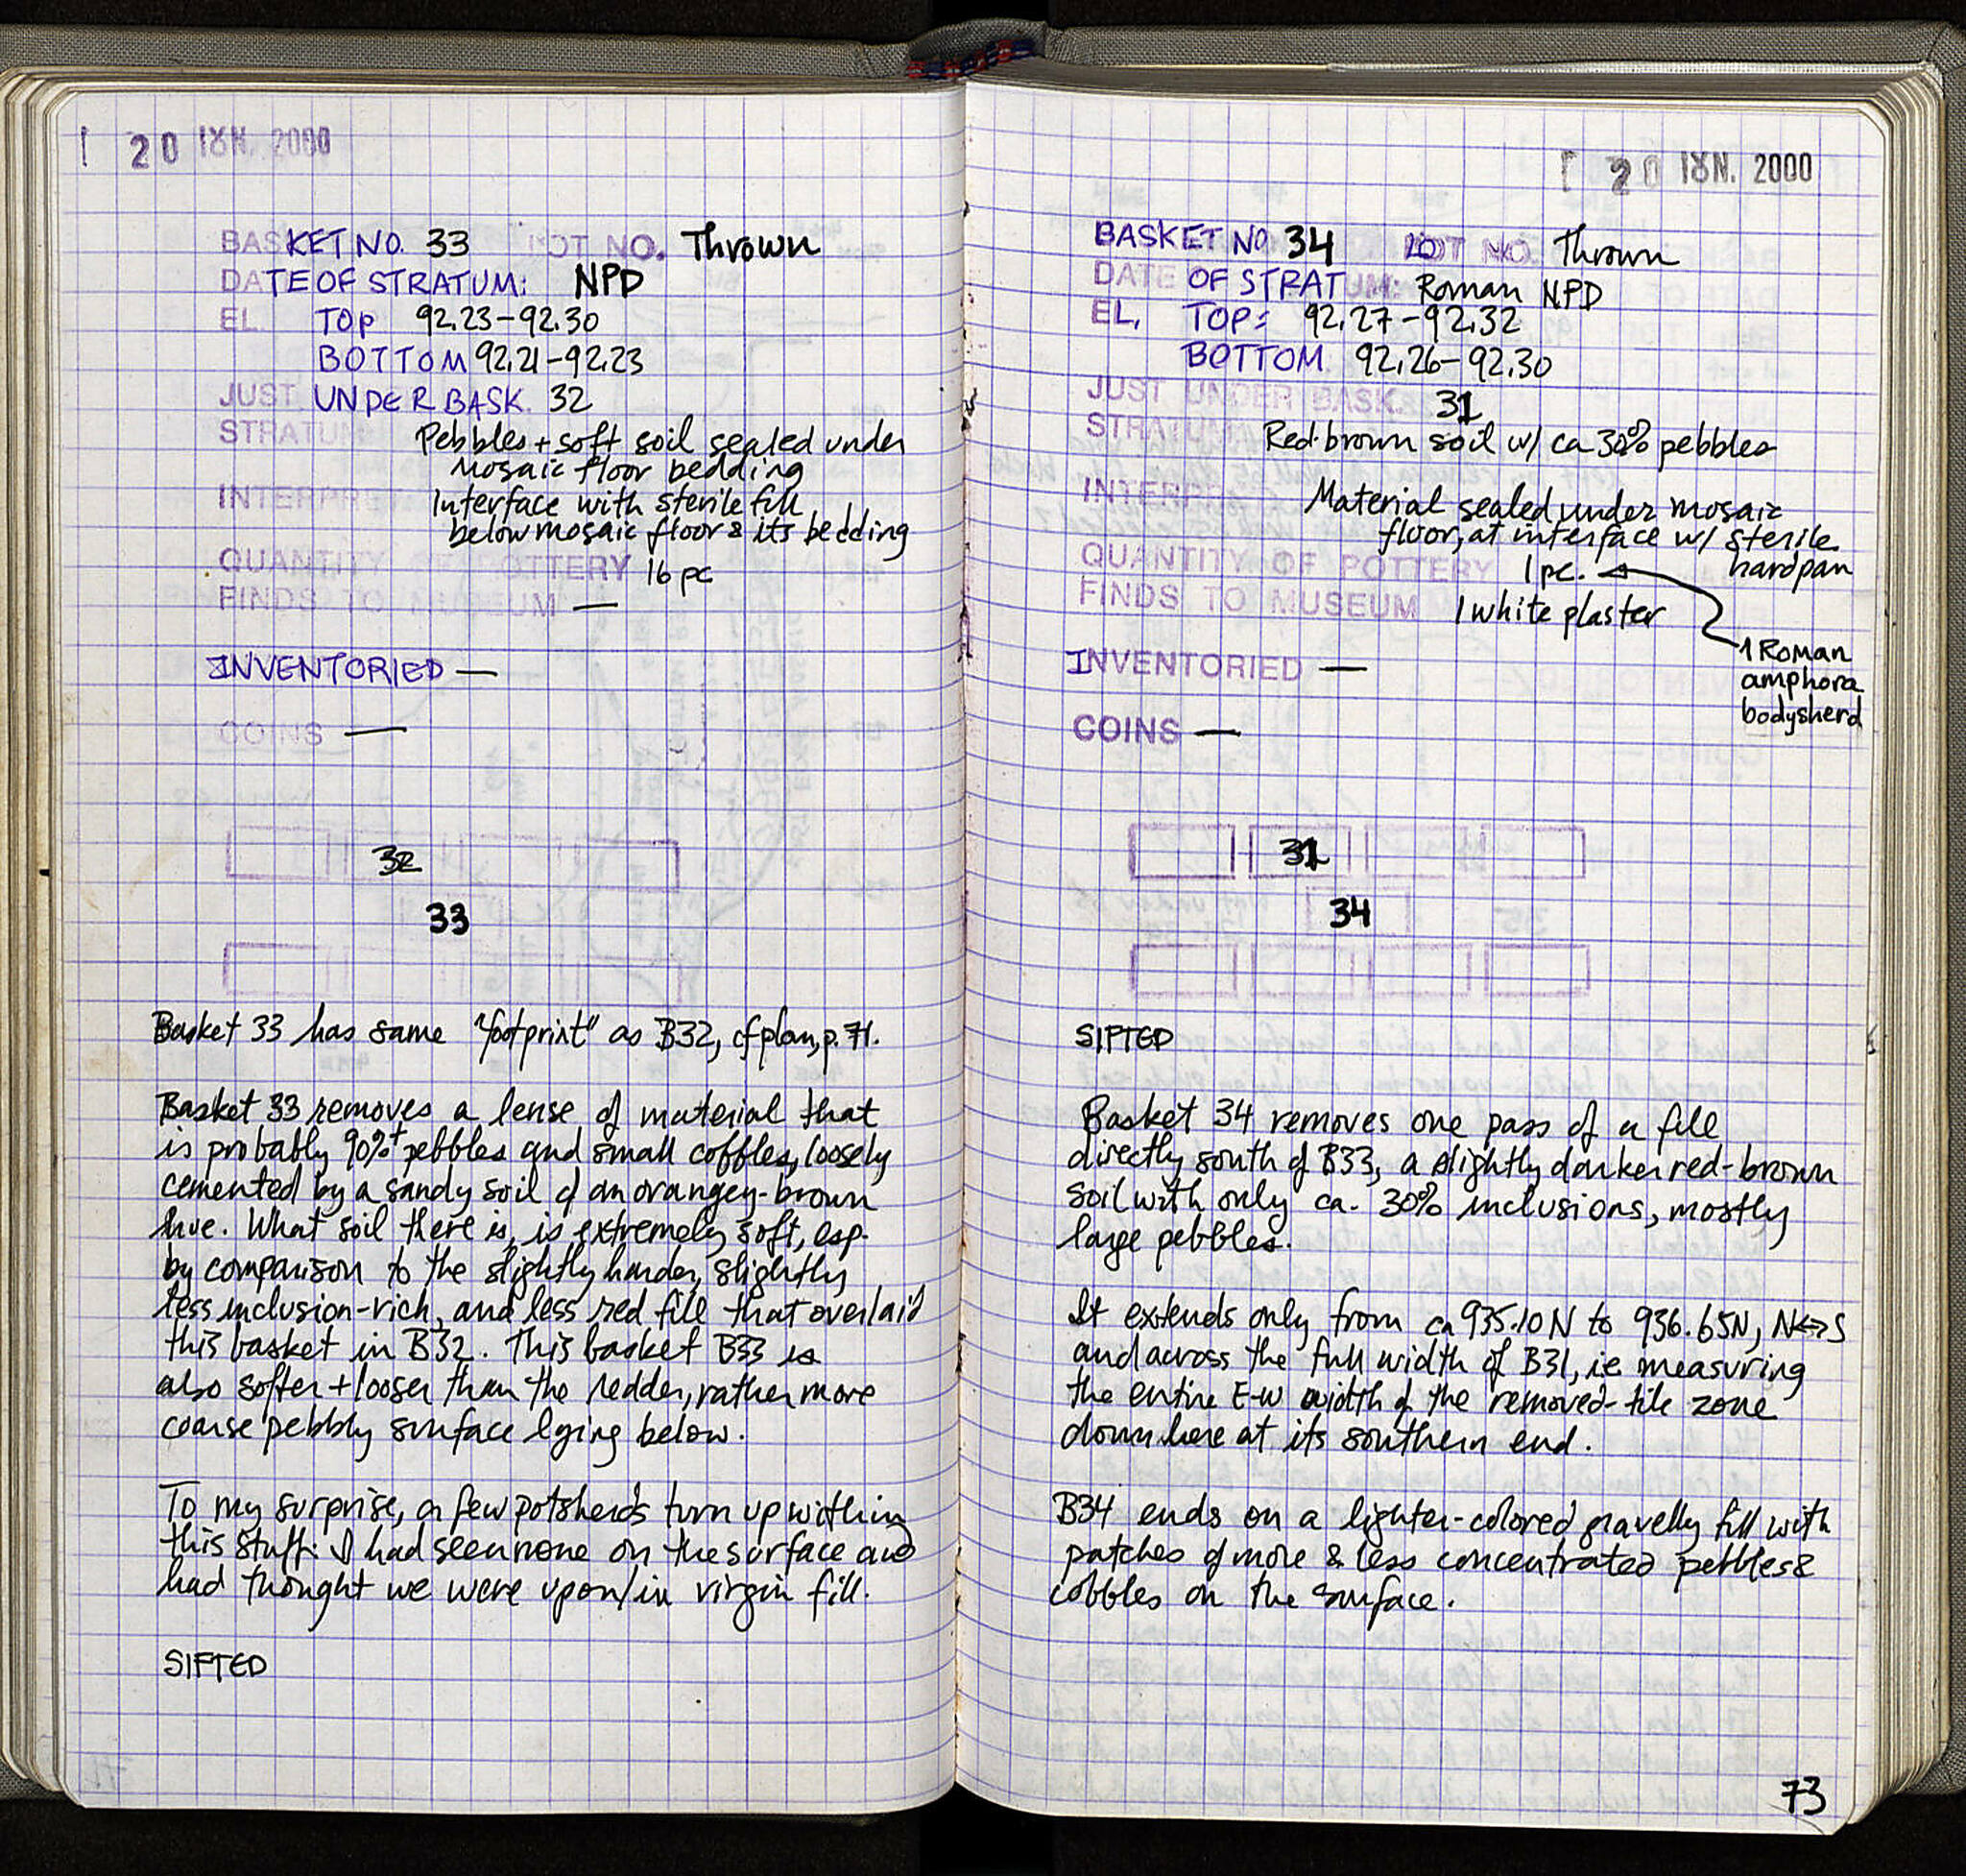 [ 20 ΙΟΥΝ. 2000
BASKET NO. 33 LOT NO. Thrown
DATE OF STRATUM: NPD
EL. TOP 92.23-92.30
BOTTOM 92.21-92.23
JUST UNDER BASK. 32
STRATUM Pebbles + soft soil sealed under
mosaic floor bedding
INTERPRET Interface with sterile fill
below mosaic floor & its bedding
QUANTITY OF POTTERY 16 pc
FINDS TO MUSEUM —
INVENTORIED —
COINS —
32
33
Basket 33 has same "footprint" as B32, cf plan, p. 71.
Basket 33 removes a lense of material that
is probably 90%+ pebbles and small cobbles, loosely
cemented by a sandy soil of an orangey-brown
hue. What soil there is, is extremely soft, esp.
by comparison to the slightly harder, slightly
less inclusion-rich, and less red fill that overlaid
this basket in B32. This basket B33 is
also softer + looser than the redder, rather more
coarse pebbly surface lying below.
To my surprise, a few potsherds turn up within
this stuff: I had seen none on the surface and
had thought we were upon/in virgin fill.
SIFTED
[ 20 ΙΟΥΝ. 2000
BASKET NO 34 LOT NO. Thrown
DATE OF STRATUM: Roman NPD
EL. TOP: 92.27-92.32
BOTTOM. 92.26-92.30
JUST UNDER BASK. 31
STRATUM Red-brown soil w/ ca 30% pebbles
INTERPR Material sealed under mosaic
floor, at interface w/ sterile
hardpan
QUANTITY OF POTTERY 1 pc.
FINDS TO MUSEUM 1 white plaster
1 Roman
amphora
bodysherd
INVENTORIED —
COINS —
31
34
SIFTED
Basket 34 removes one pass of a fill
directly south of B33, a slightly darker red-brown
soil with only ca. 30% inclusions, mostly
large pebbles.
It extends only from ca 935.10N to 936.65N, N↔S
and across the full width of B31, ie measuring
the entire E-W width of the removed-tile zone
down here at its southern end.
B34 ends on a lighter-colored gravelly fill with
patches of more & less concentrated pebbles &
cobbles on the surface.
73